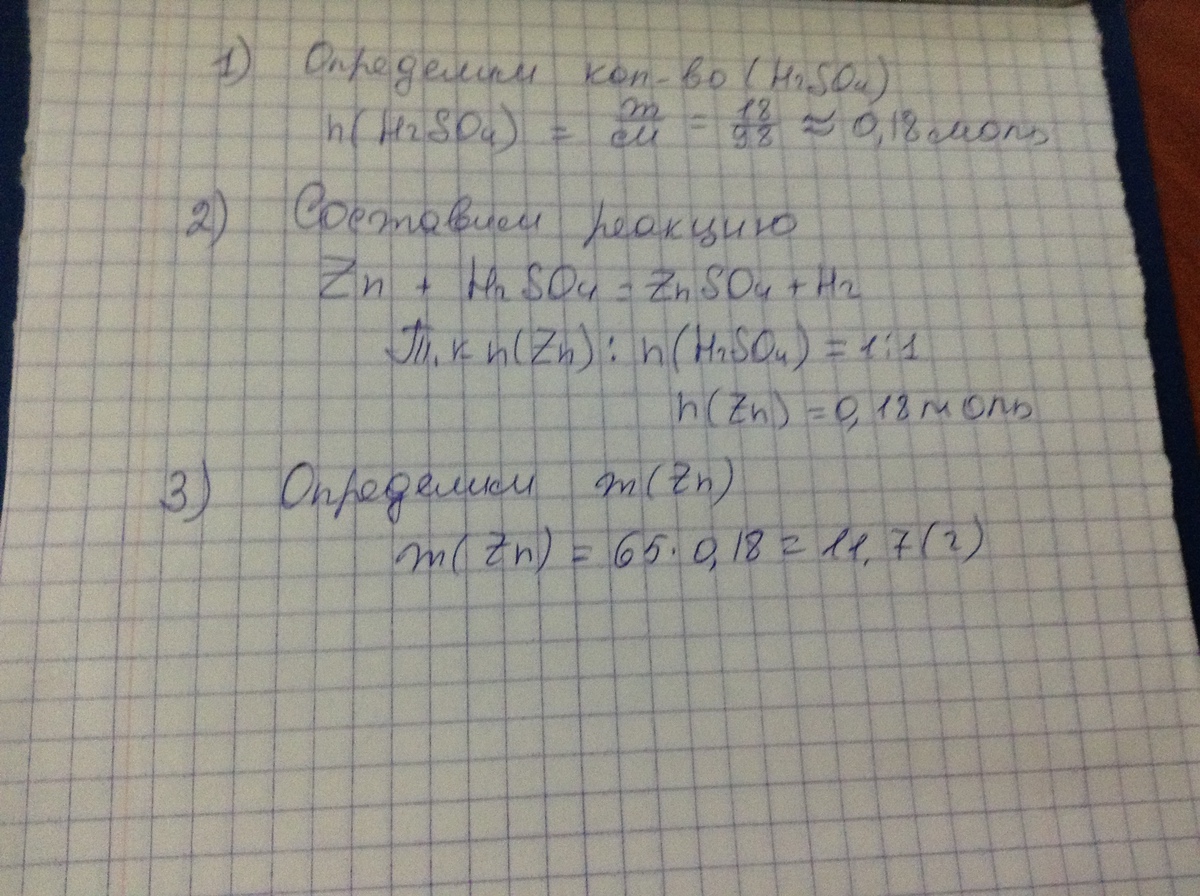 1) Определим кол-во (H₂SO₄)
n(H₂SO₄) = m/M = 18/98 ≈ 0,18 моль
2) Составим реакцию
Zn + H₂SO₄ = ZnSO₄ + H₂
Т.к n(Zn) : n(H₂SO₄) = 1:1
n(Zn) = 0,18 моль
3) Определим m(Zn)
m(Zn) = 65 · 0,18 = 11,7 (г)